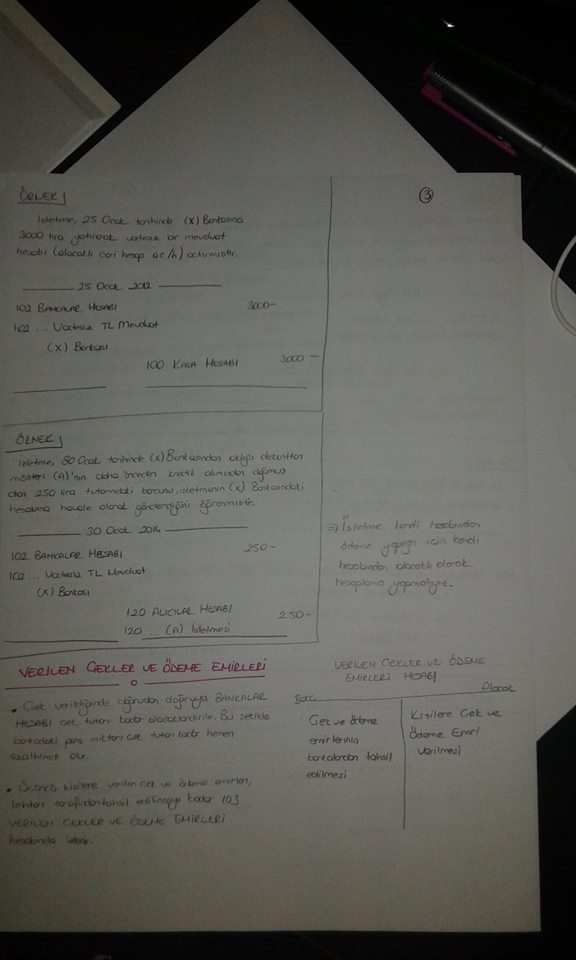 ÖRNEK
③
İşletme, 25 Ocak tarihinde (X) Bankasına
3000 lira yatırarak vadesiz bir mevduat
hesabı (alacaklı cari hesap ac/h) açtırmıştır.
25 Ocak 2012
102 BANKALAR HESABI 3000-
102 ... Vadesiz TL Mevduat
(X) Bankası
100 KASA HESABI 3000-
ÖRNEK
İşletme, 30 Ocak tarihinde (X) Bankasından aldığı dekonttan
müşteri (A)'nın daha önceden kredili alımından doğmuş
olan 250 lira tutarındaki borcunu, işletmenin (X) Bankasındaki
hesabına havale olarak gönderdiğini öğrenmiştir.
30 Ocak 2014
102 BANKALAR HESABI 250-
102 ... Vadesiz TL Mevduat
(X) Bankası
120 ALICILAR HESABI 250-
120 .. (A) İşletmesi
=) İşletme kendi hesabından
ödeme yaptığı için kendi
hesabından alacaklı olarak
hesaplama yapmalıyız.
VERİLEN ÇEKLER VE ÖDEME EMİRLERİ
• Çek verildiğinde doğrudan doğruya BANKALAR
HESABI çek tutarı kadar alacaklandırılır. Bu şekilde
bankadaki para miktarı çek tutarı kadar hemen
azaltılmış olur.
• kişilere verilen çek ve ödeme emirleri,
tarafından tahsil edilinceye kadar 103
VERİLEN ÇEKLER VE ÖDEME EMİRLERİ
hesabında izlenir.
VERİLEN ÇEKLER VE ÖDEME
EMİRLERİ HESABI
Borç Alacak
Çek ve ödeme
emirlerinin
bankalardan tahsil
edilmesi
Kişilere Çek ve
Ödeme Emri
Verilmesi